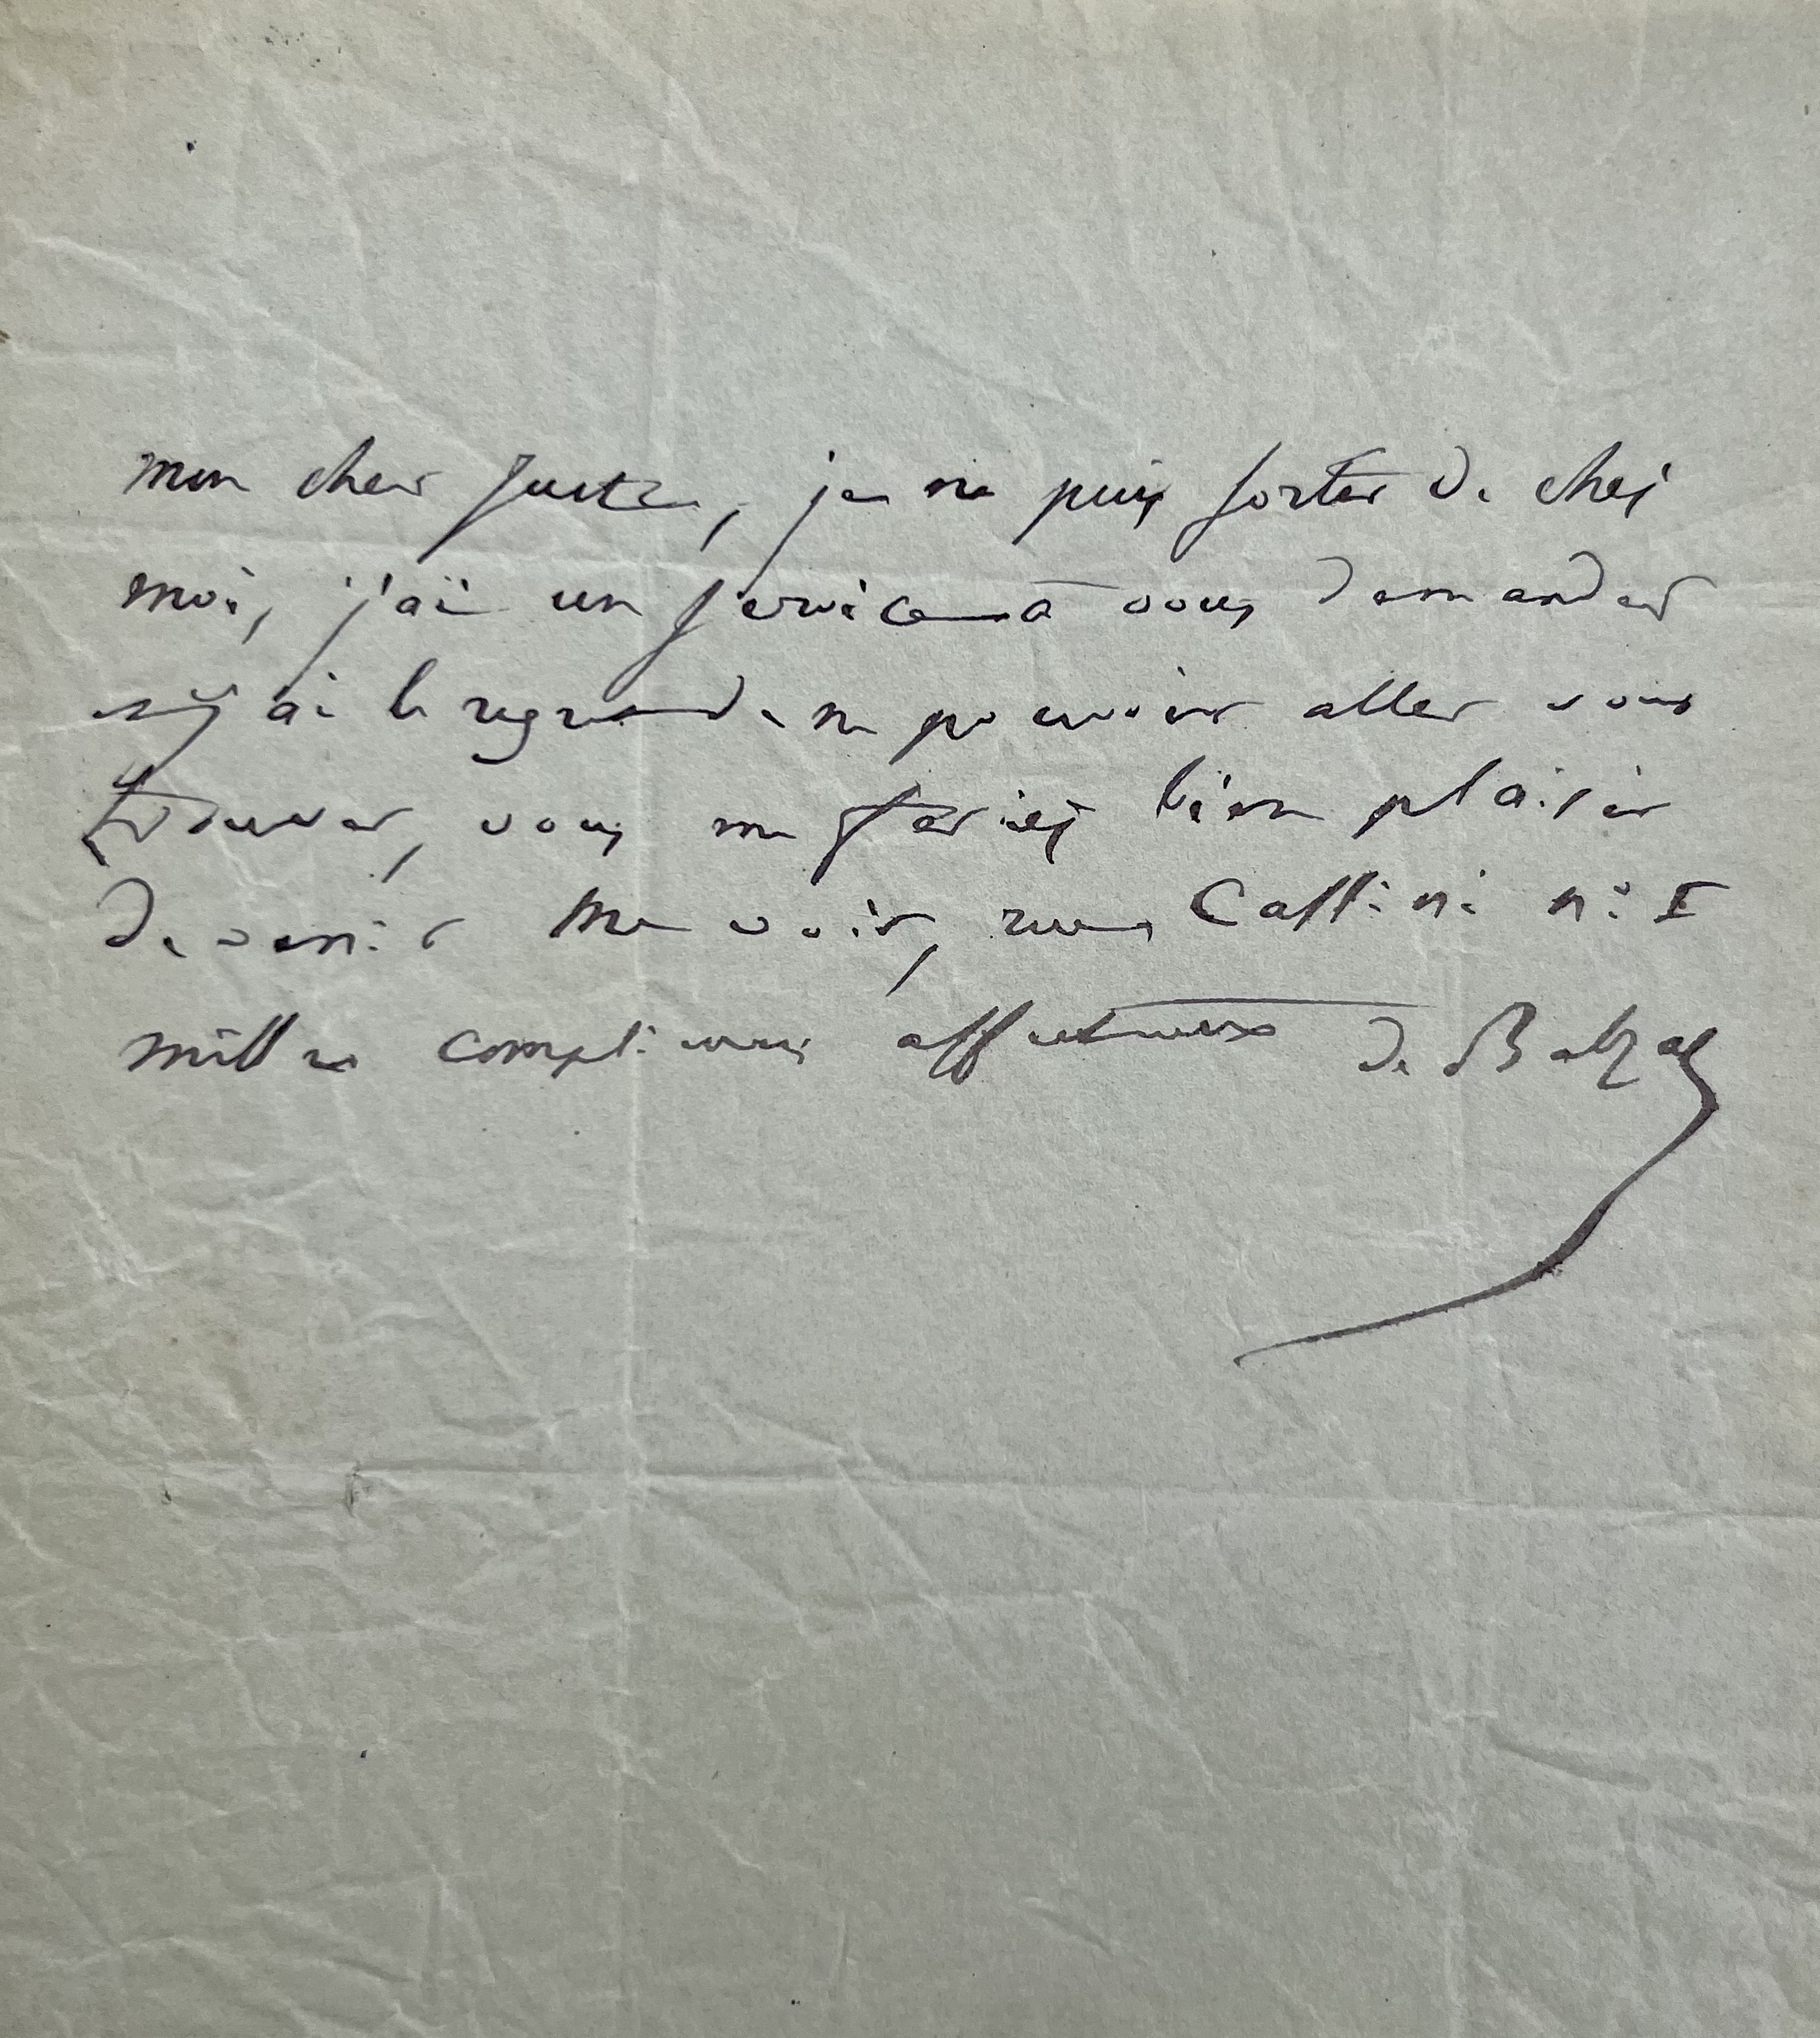 mon cher Juste, je ne puis sortir de chez
moi, j'ai un service à vous demander
et j'ai le regret de ne pouvoir aller vous
trouver, vous me feriez bien plaisir
de venir me voir, rue Cassini n° I
mille compliments affectueux de Balzac